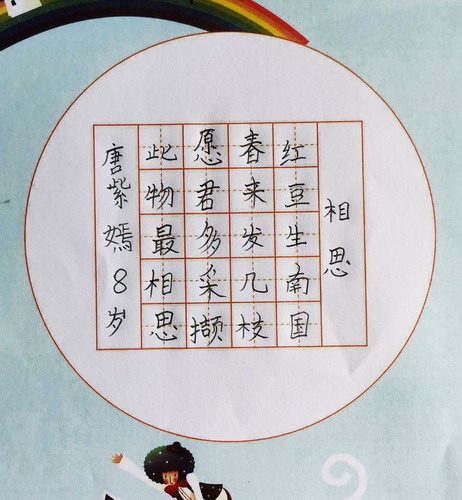 相思
红豆生南国
春来发几枝
愿君多采撷
此物最相思
唐紫嫣8岁